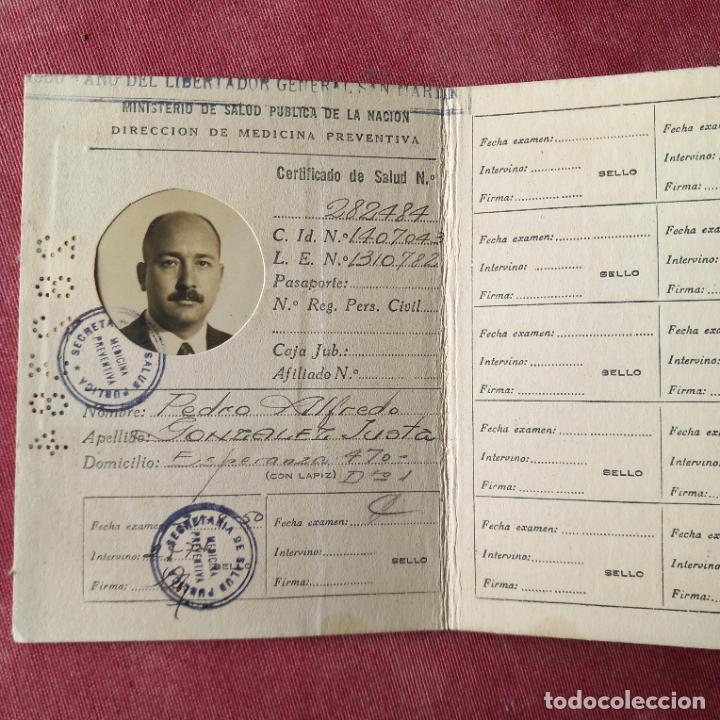 1950 - AÑO DEL LIBERTADOR GENERAL SAN MARTIN
MINISTERIO DE SALUD PUBLICA DE LA NACION
DIRECCION DE MEDICINA PREVENTIVA
Certificado de Salud N.º
282484
C. Id. N.º 1407043
L. E. N.º 1310782
Pasaporte:
N.º Reg. Pers. Civil
Caja Jub.:
Afiliado N.º
SECRETARIA DE SALUD PUBLICA
MEDICINA PREVENTIVA
Nombre: Pedro Alfredo
Apellido: GONZALEZ, Justa
Domicilio: Esperanza 470-
(CON LAPIZ) Dto 1
Fecha examen: 50
Intervino:
Firma:
SECRETARIA DE SALUD PUBLICA
MEDICINA PREVENTIVA
Fecha examen:
Intervino:
SELLO
Firma:
Fecha examen:
Intervino:
SELLO
Firma:
Fecha exa
Intervino:
Firma:
Fecha examen:
Intervino:
SELLO
Firma:
Fecha exa
Intervino:
Firma:
Fecha examen:
Intervino:
SELLO
Firma:
Fecha exa
Intervino:
Firma:
Fecha examen:
Intervino:
SELLO
Firma:
Fecha exam
Intervino:
Firma:
Fecha examen:
Intervino:
SELLO
Firma:
Fecha exam
Intervino:
Firma:
todocoleccion